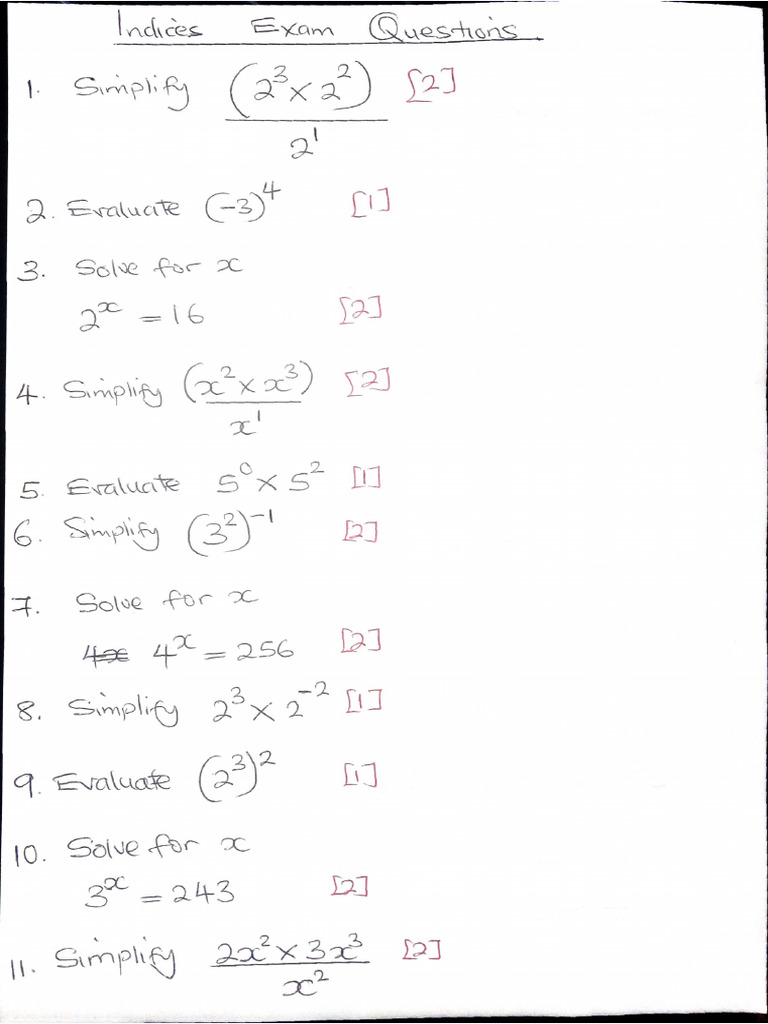 Indices Exam Questions
1. Simplify (2³ × 2²) / 2¹ [2]
2. Evaluate (-3)⁴ [1]
3. Solve for x
2ˣ = 16 [2]
4. Simplify (x² × x³) / x¹ [2]
5. Evaluate 5⁰ × 5² [1]
6. Simplify (3²)⁻¹ [2]
7. Solve for x
4x 4ˣ = 256 [2]
8. Simplify 2³ × 2⁻² [1]
9. Evaluate (2³)² [1]
10. Solve for x
3ˣ = 243 [2]
11. Simplify 2x² × 3x³ / x² [2]